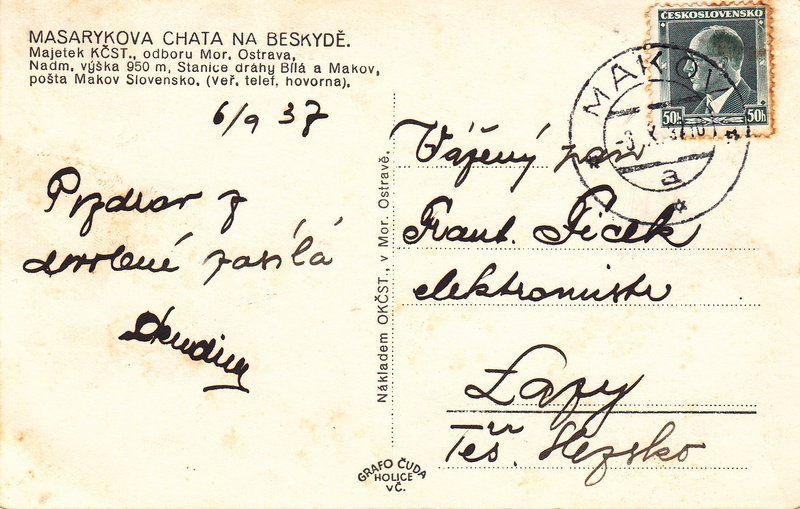 MASARYKOVA CHATA NA BESKYDĚ.
Majetek KČST., odboru Mor. Ostrava,
Nadm. výška 950 m, Stanice dráhy Bílá a Makov,
pošta Makov Slovensko. (Veř. telef. hovorna).
6/9 37
Pozdrav z
dovolené zasílá
Nákladem OKČST., v Mor. Ostravě.
ČESKOSLOVENSKO
50h 50h
MAKOV
a
Vážený pan
Frant. Ficek
elektromistr
Lazy
Těš. Slezsko
GRAFO ČUDA
HOLICE
VČ.